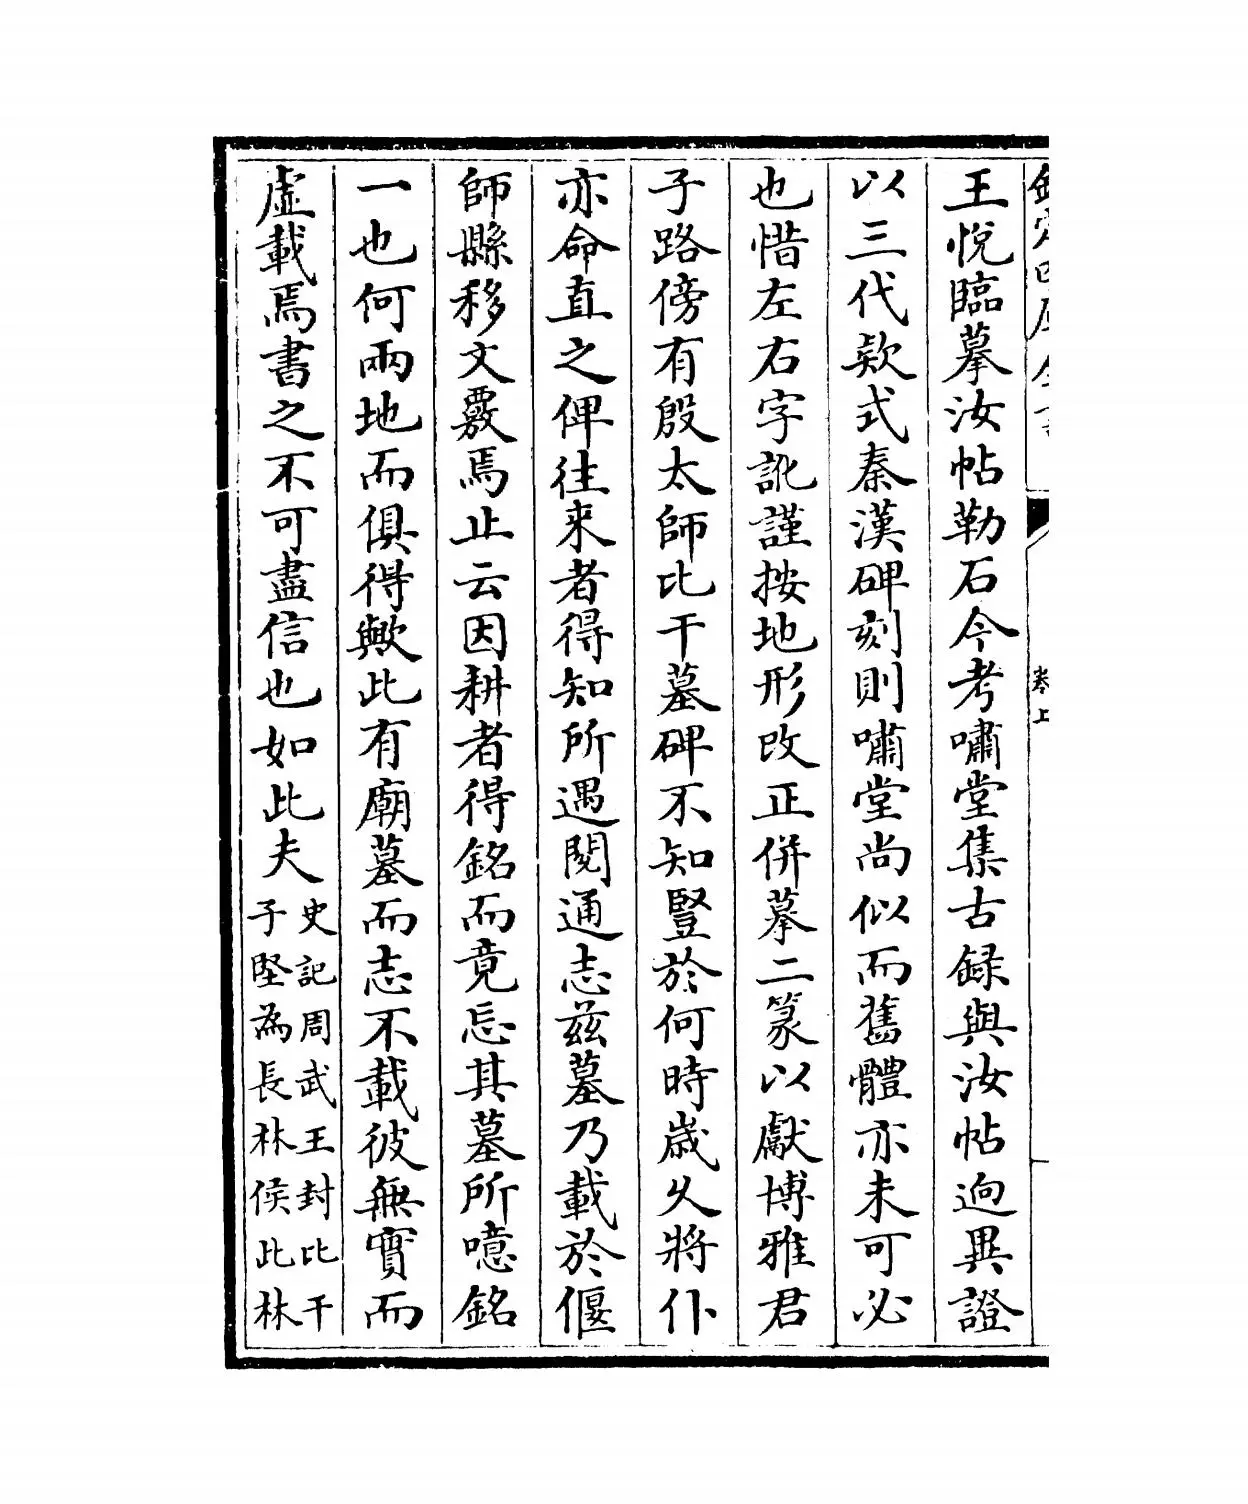 欽定四庫全書
卷上
王悅臨摹汝帖勒石今考嘯堂集古録與汝帖逈異證
以三代欵式秦漢碑刻則嘯堂尚似而舊體亦未可必
也惜左右字訛謹按地形改正併摹二篆以獻博雅君
子路傍有殷太師比干墓碑不知豎於何時歳久將仆
亦命直之俾往来者得知所遇閱通志兹墓乃載於偃
師縣移文覈焉止云因耕者得銘而竟忘其墓所噫銘
一也何兩地而俱得歟此有廟墓而志不載彼無實而
虛載焉書之不可盡信也如此夫史記周武王封比干
子堅為長林侯此林